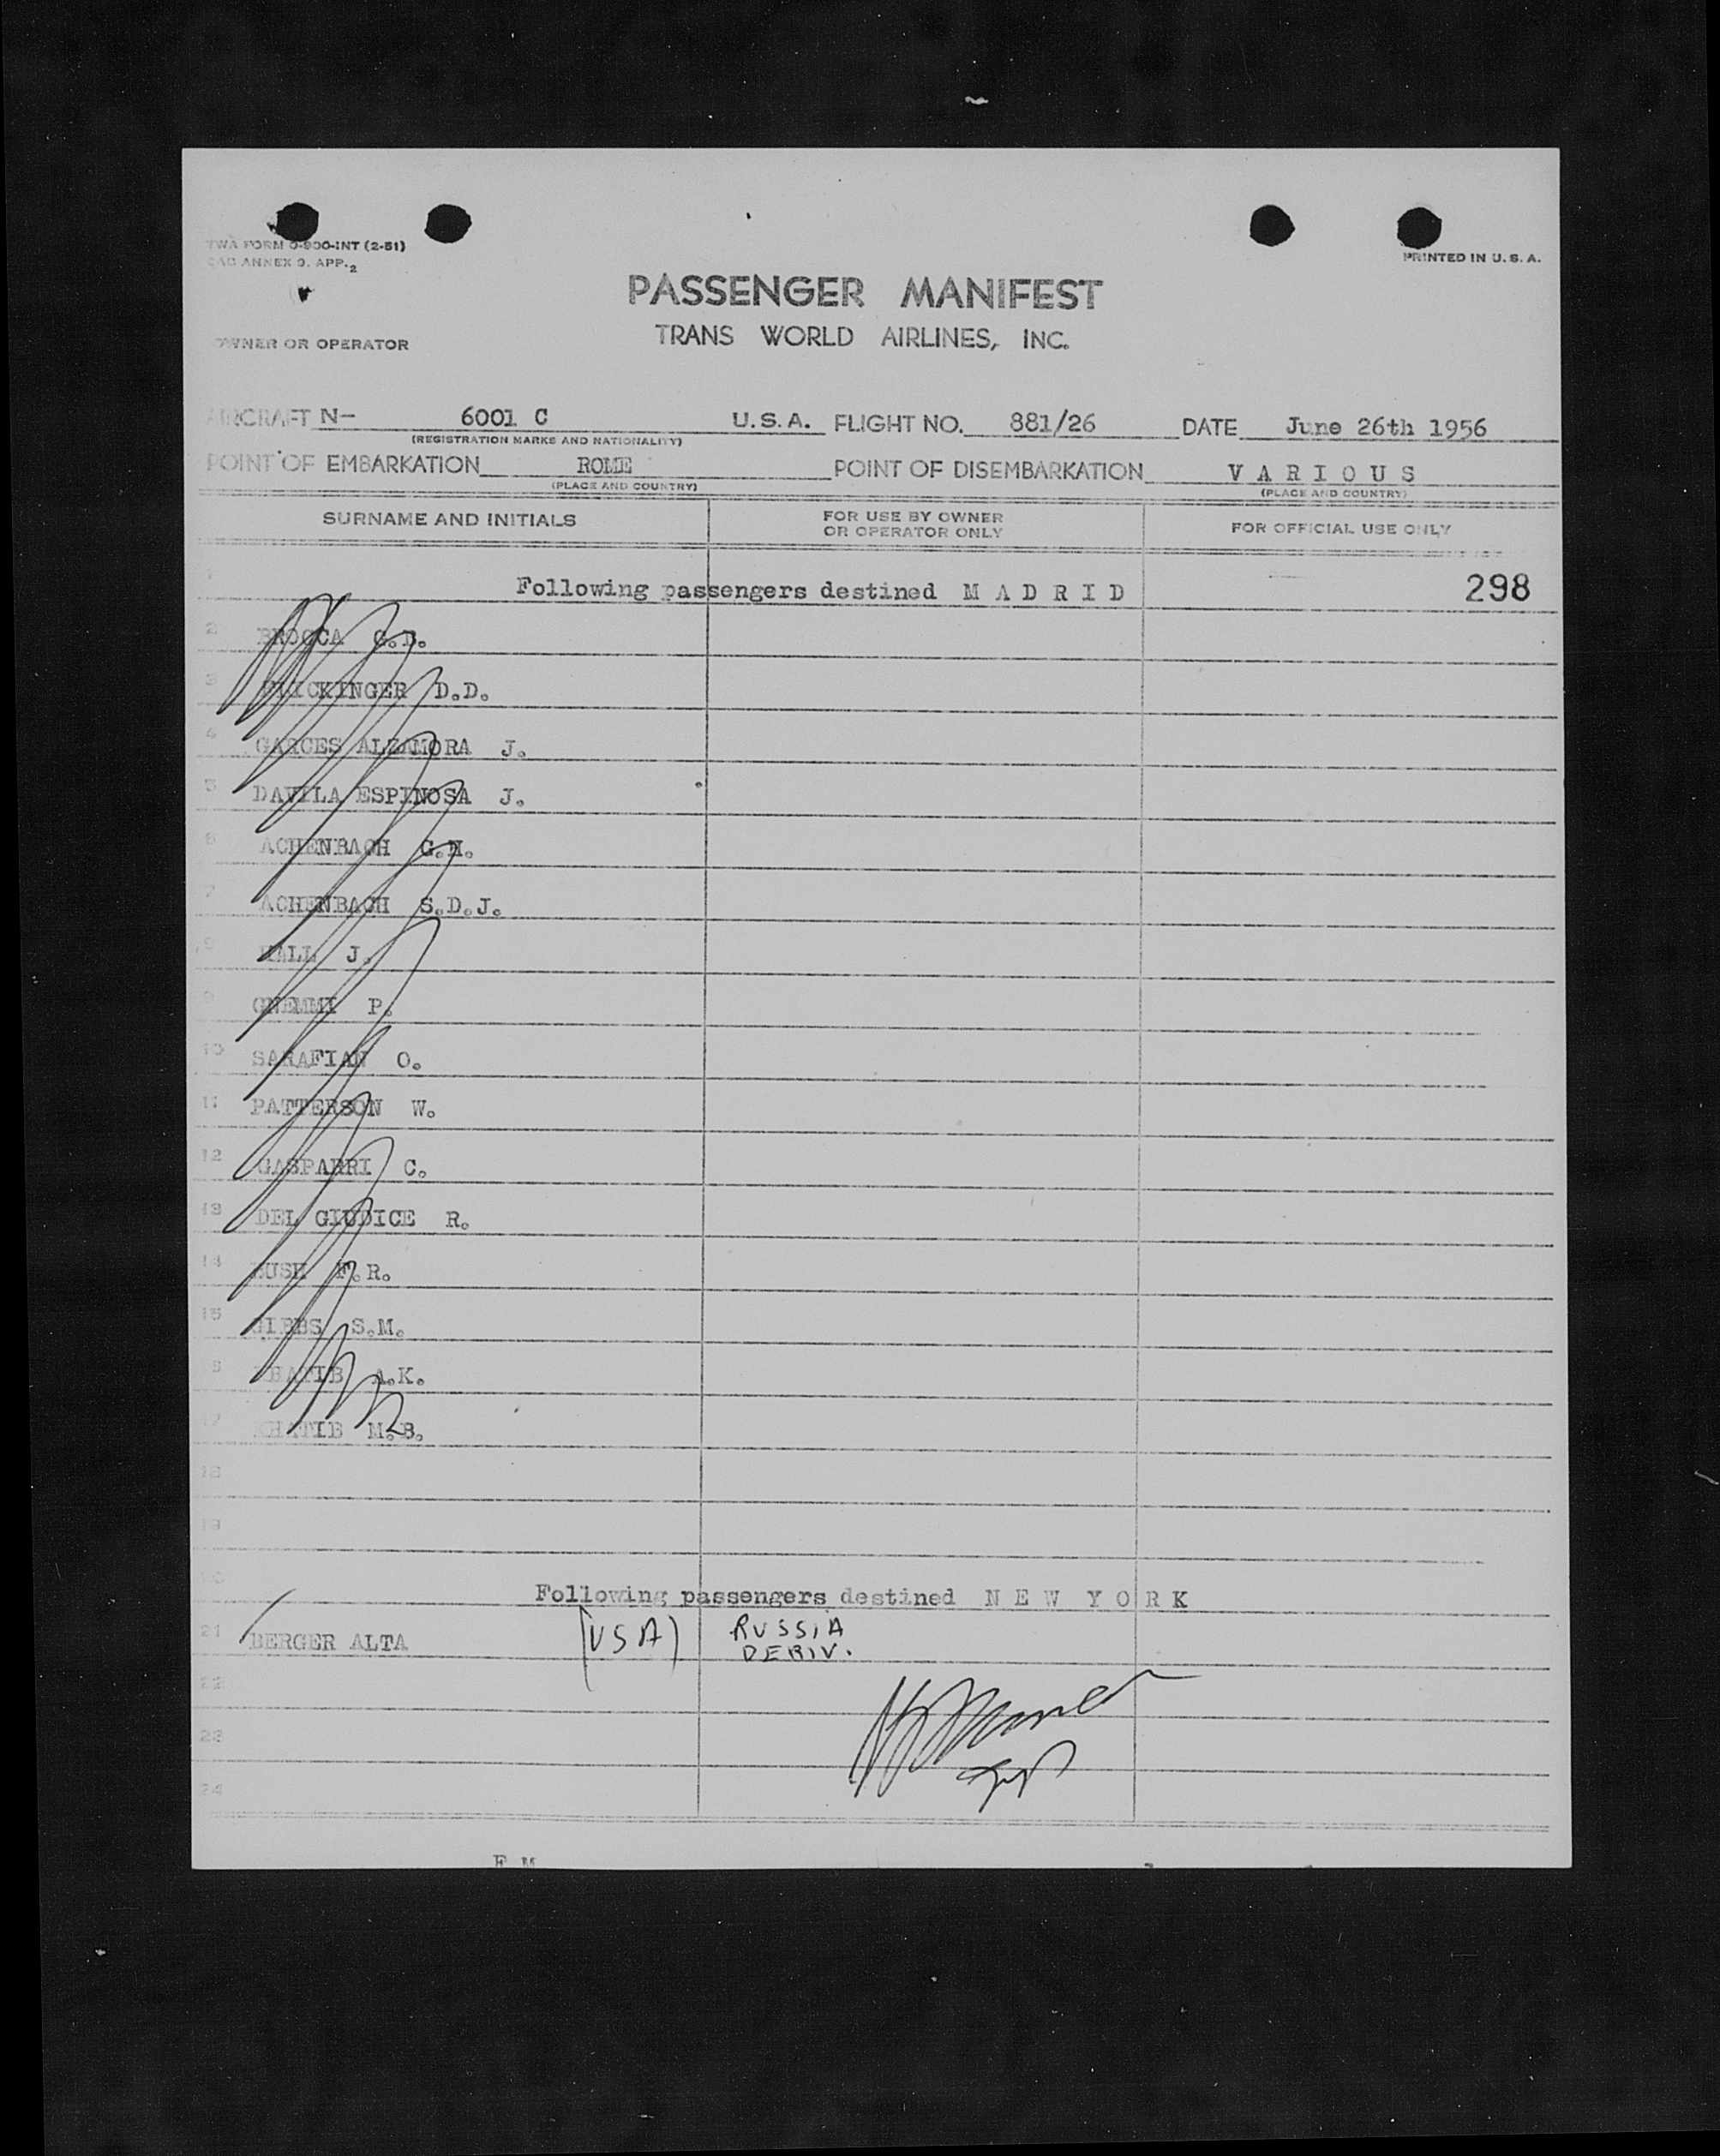 TWA FORM 0-900-INT (2-51)
ICAO ANNEX 9. APP. 2
PRINTED IN U. S. A.
PASSENGER MANIFEST
TRANS WORLD AIRLINES, INC.
OWNER OR OPERATOR
AIRCRAFT N- 6001 C U. S. A. FLIGHT NO. 881/26 DATE June 26th 1956
(REGISTRATION MARKS AND NATIONALITY)
POINT OF EMBARKATION ROME POINT OF DISEMBARKATION V A R I O U S
(PLACE AND COUNTRY) (PLACE AND COUNTRY)
SURNAME AND INITIALS FOR USE BY OWNER OR OPERATOR ONLY FOR OFFICIAL USE ONLY
1 Following passengers destined M A D R I D 298
2 BROCCA
3 D.D.
4 GARCES ALZAMORA J.
5 DAVILA ESPINOSA J.
6 ACHENBACH G.H.
7 ACHENBACH S.D.J.
8 HALL J.
9 GNEMMI P.
10 SARAFIAN O.
11 PATTERSON W.
12 GASPARRI C.
13 DEL GIUDICE R.
14 BUSH F.R.
15 GIBBS S.M.
16 KHATIB A.K.
17 KHATIB M.B.
18
19
20 Following passengers destined N E W Y O R K
21 BERGER ALTA (USA) RUSSIA
DERIV.
22
23
24